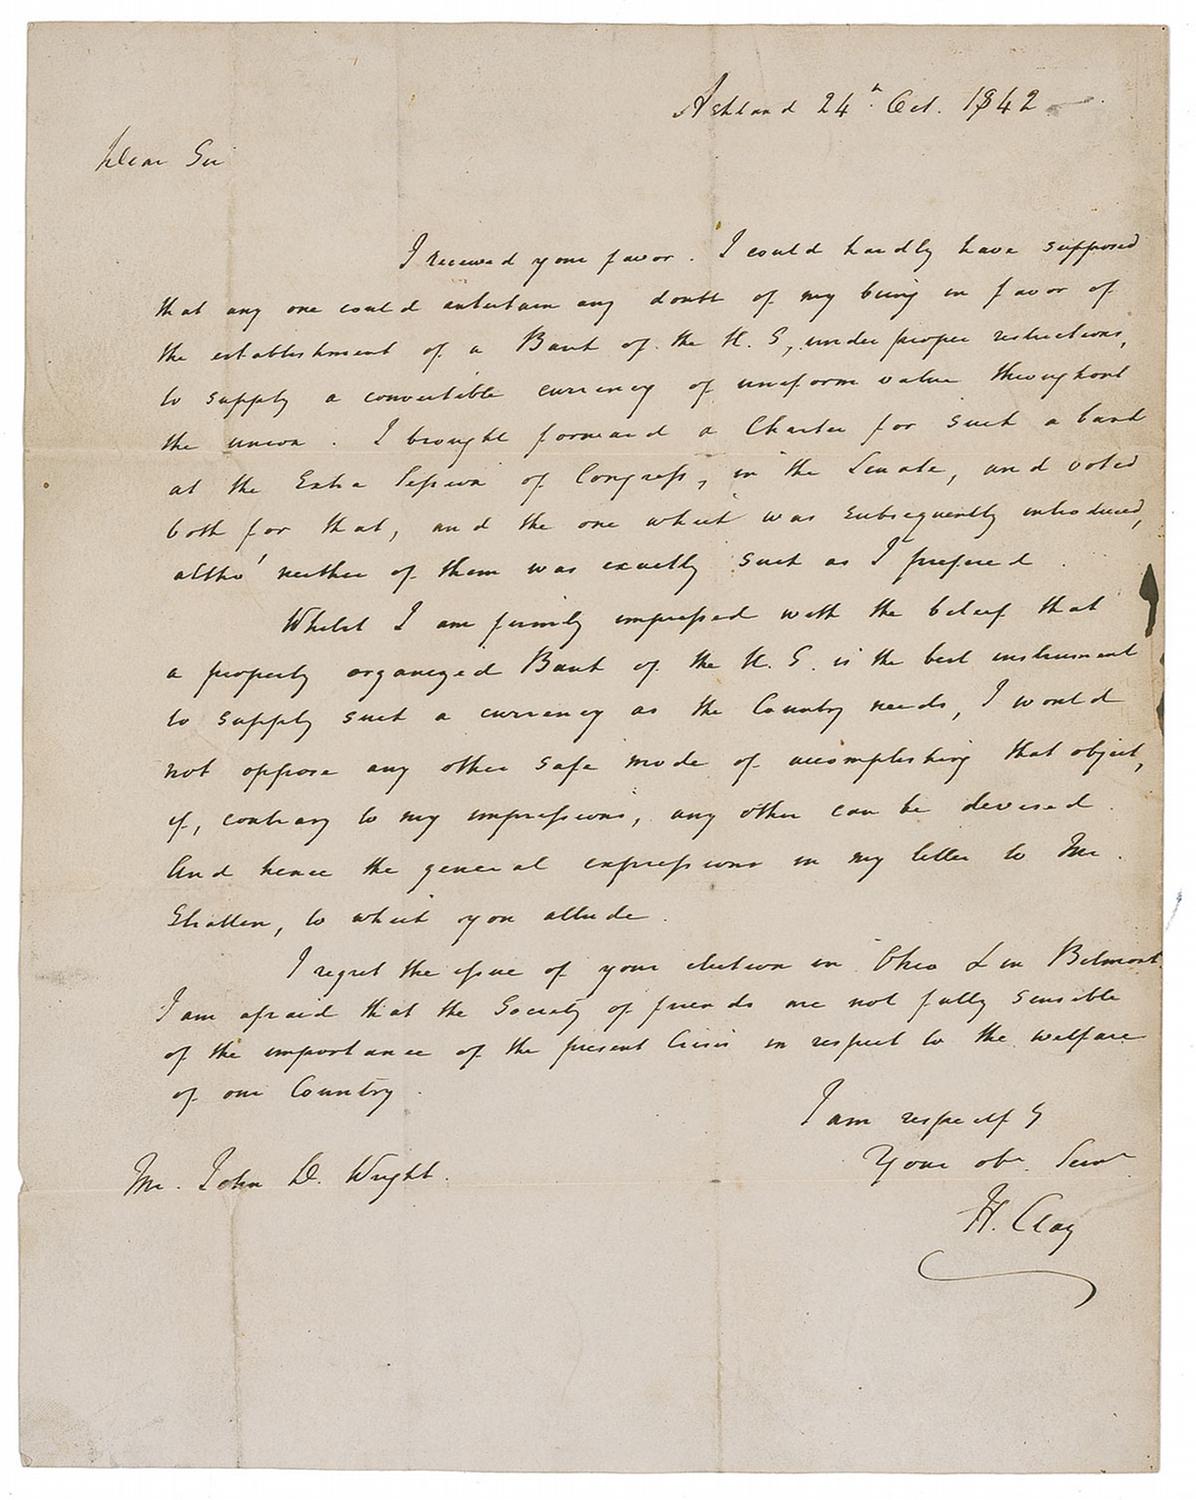 Ashland 24h. Oct. 1842
Dear Sir
I received your favor. I could hardly have supposed
that any one could entertain any doubt of my being in favor of
the establishment of a Bank of the U. S, under proper restrictions,
to supply a convertible currency of uniform value throughout
the union. I brought forward a Charter for such a bank
at the Extra Session of Congress, in the Senate, and voted
both for that, and the one which was subsequently introduced,
altho' neither of them was exactly such as I prefered.
Whilst I am firmly impressed with the beleif that
a properly organized Bank of the U. S. is the best instrument
to supply such a currency as the Country needs, I would
not oppose any other safe mode of accomplishing that object,
if, contrary to my impressions, any other can be devised.
And hence the general expressions in my letter to Mr.
to which you allude.
I regret the issue of your election in Ohio & in Belmont.
I am afraid that the Society of friends are not fully sensible
of the importance of the present Crisis in respect to the welfare
of our Country.
I am respectfy
Your obt. Servt
Mr. John D. Wright.
H. Clay